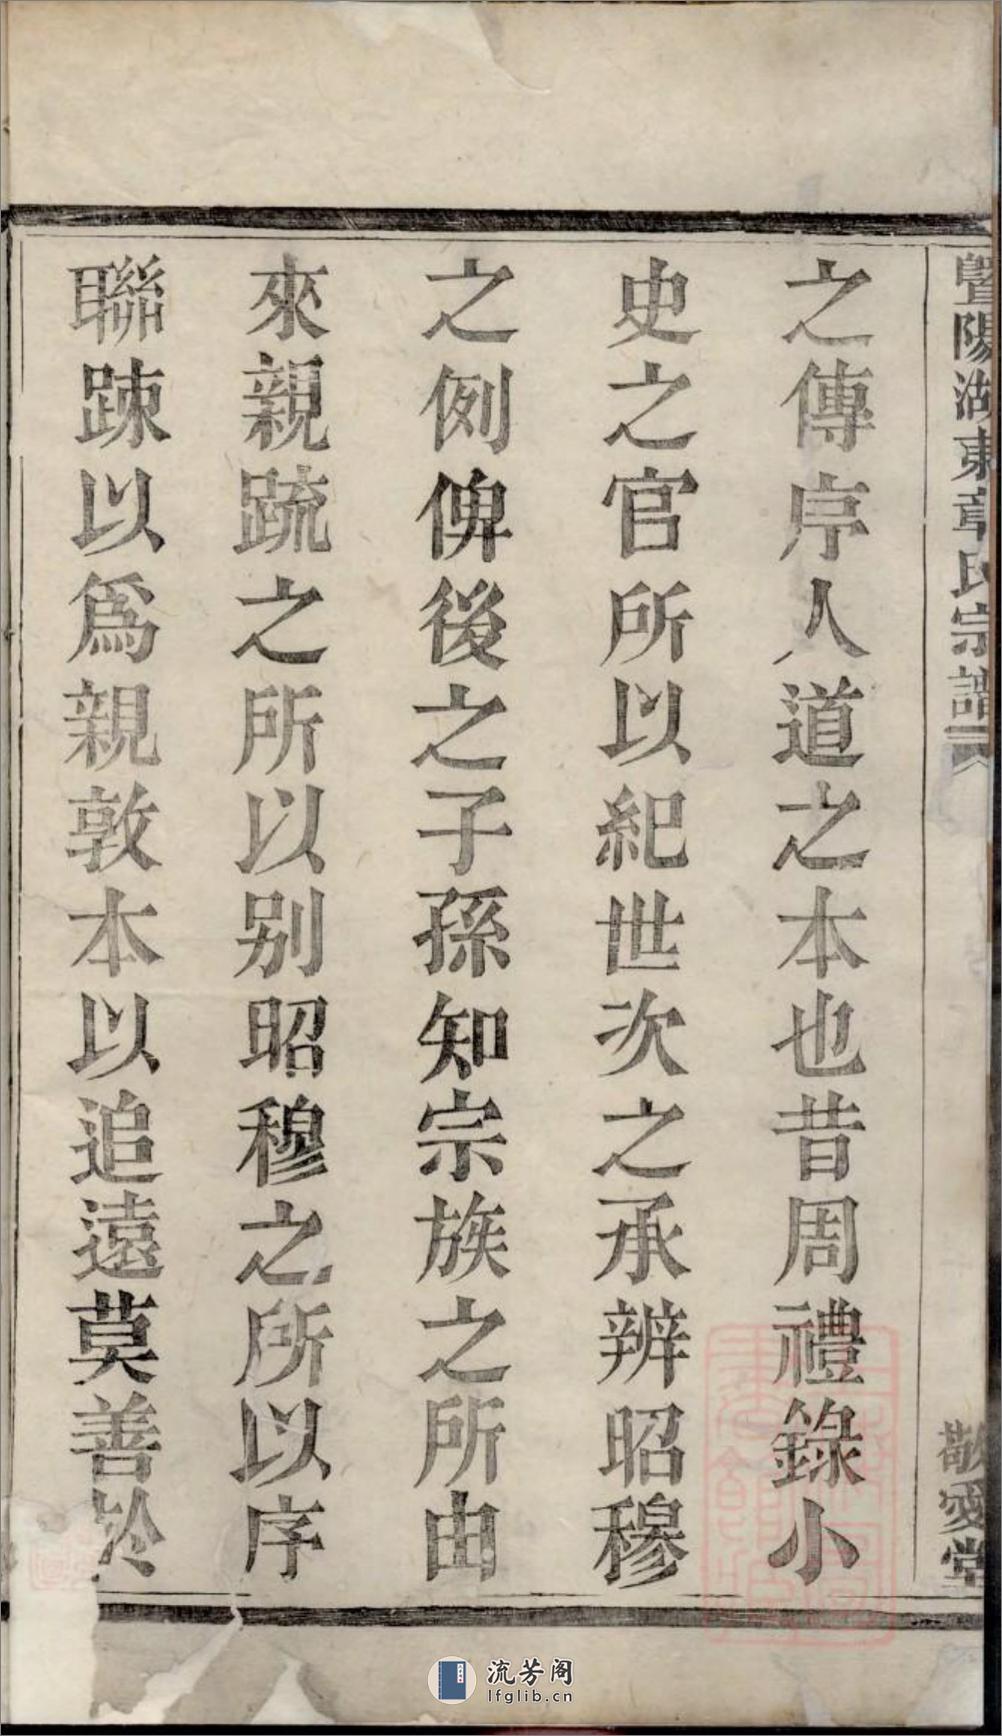 暨陽湖東章氏宗譜
敬愛堂
之傳序人道之本也昔周禮錄小
史之官所以紀世次之承辨昭穆
之例俾後之子孫知宗族之所由
來親䟽之所以别昭穆之所以序
聯踈以爲親敦本以追遠莫善於
流芳阁
lfglib.cn